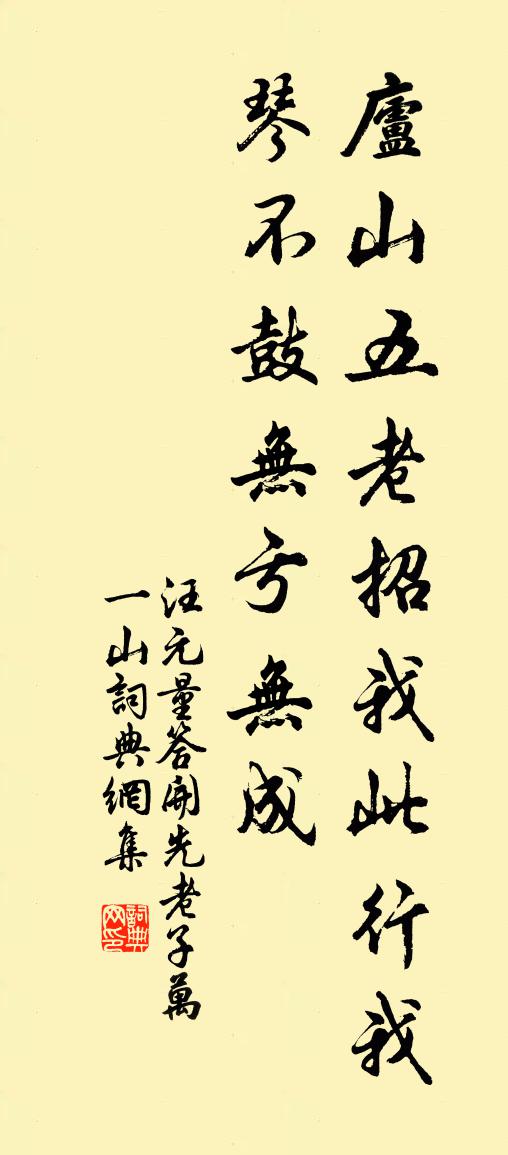 廬山五老招我此行我
琴不鼓無亏無成
汪元量答開先老子萬
一山詞典網集
詞典网印